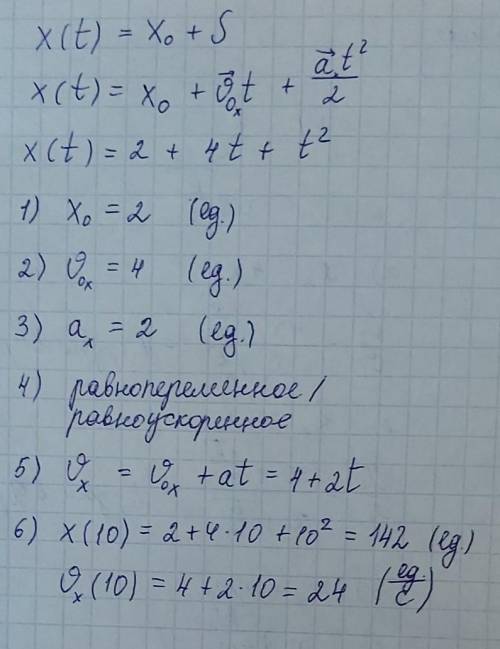 x(t) = x₀ + S
x(t) = x₀ + ϑ⃗₀ₓt + a⃗ₓt²/2
x(t) = 2 + 4t + t²
1) x₀ = 2 (ед.)
2) ϑ₀ₓ = 4 (ед.)
3) aₓ = 2 (ед.)
4) равнопеременное /
равноускоренное
5) ϑₓ = ϑ₀ₓ + at = 4 + 2t
6) x(10) = 2 + 4·10 + 10² = 142 (ед.)
ϑₓ(10) = 4 + 2·10 = 24 (ед/с)